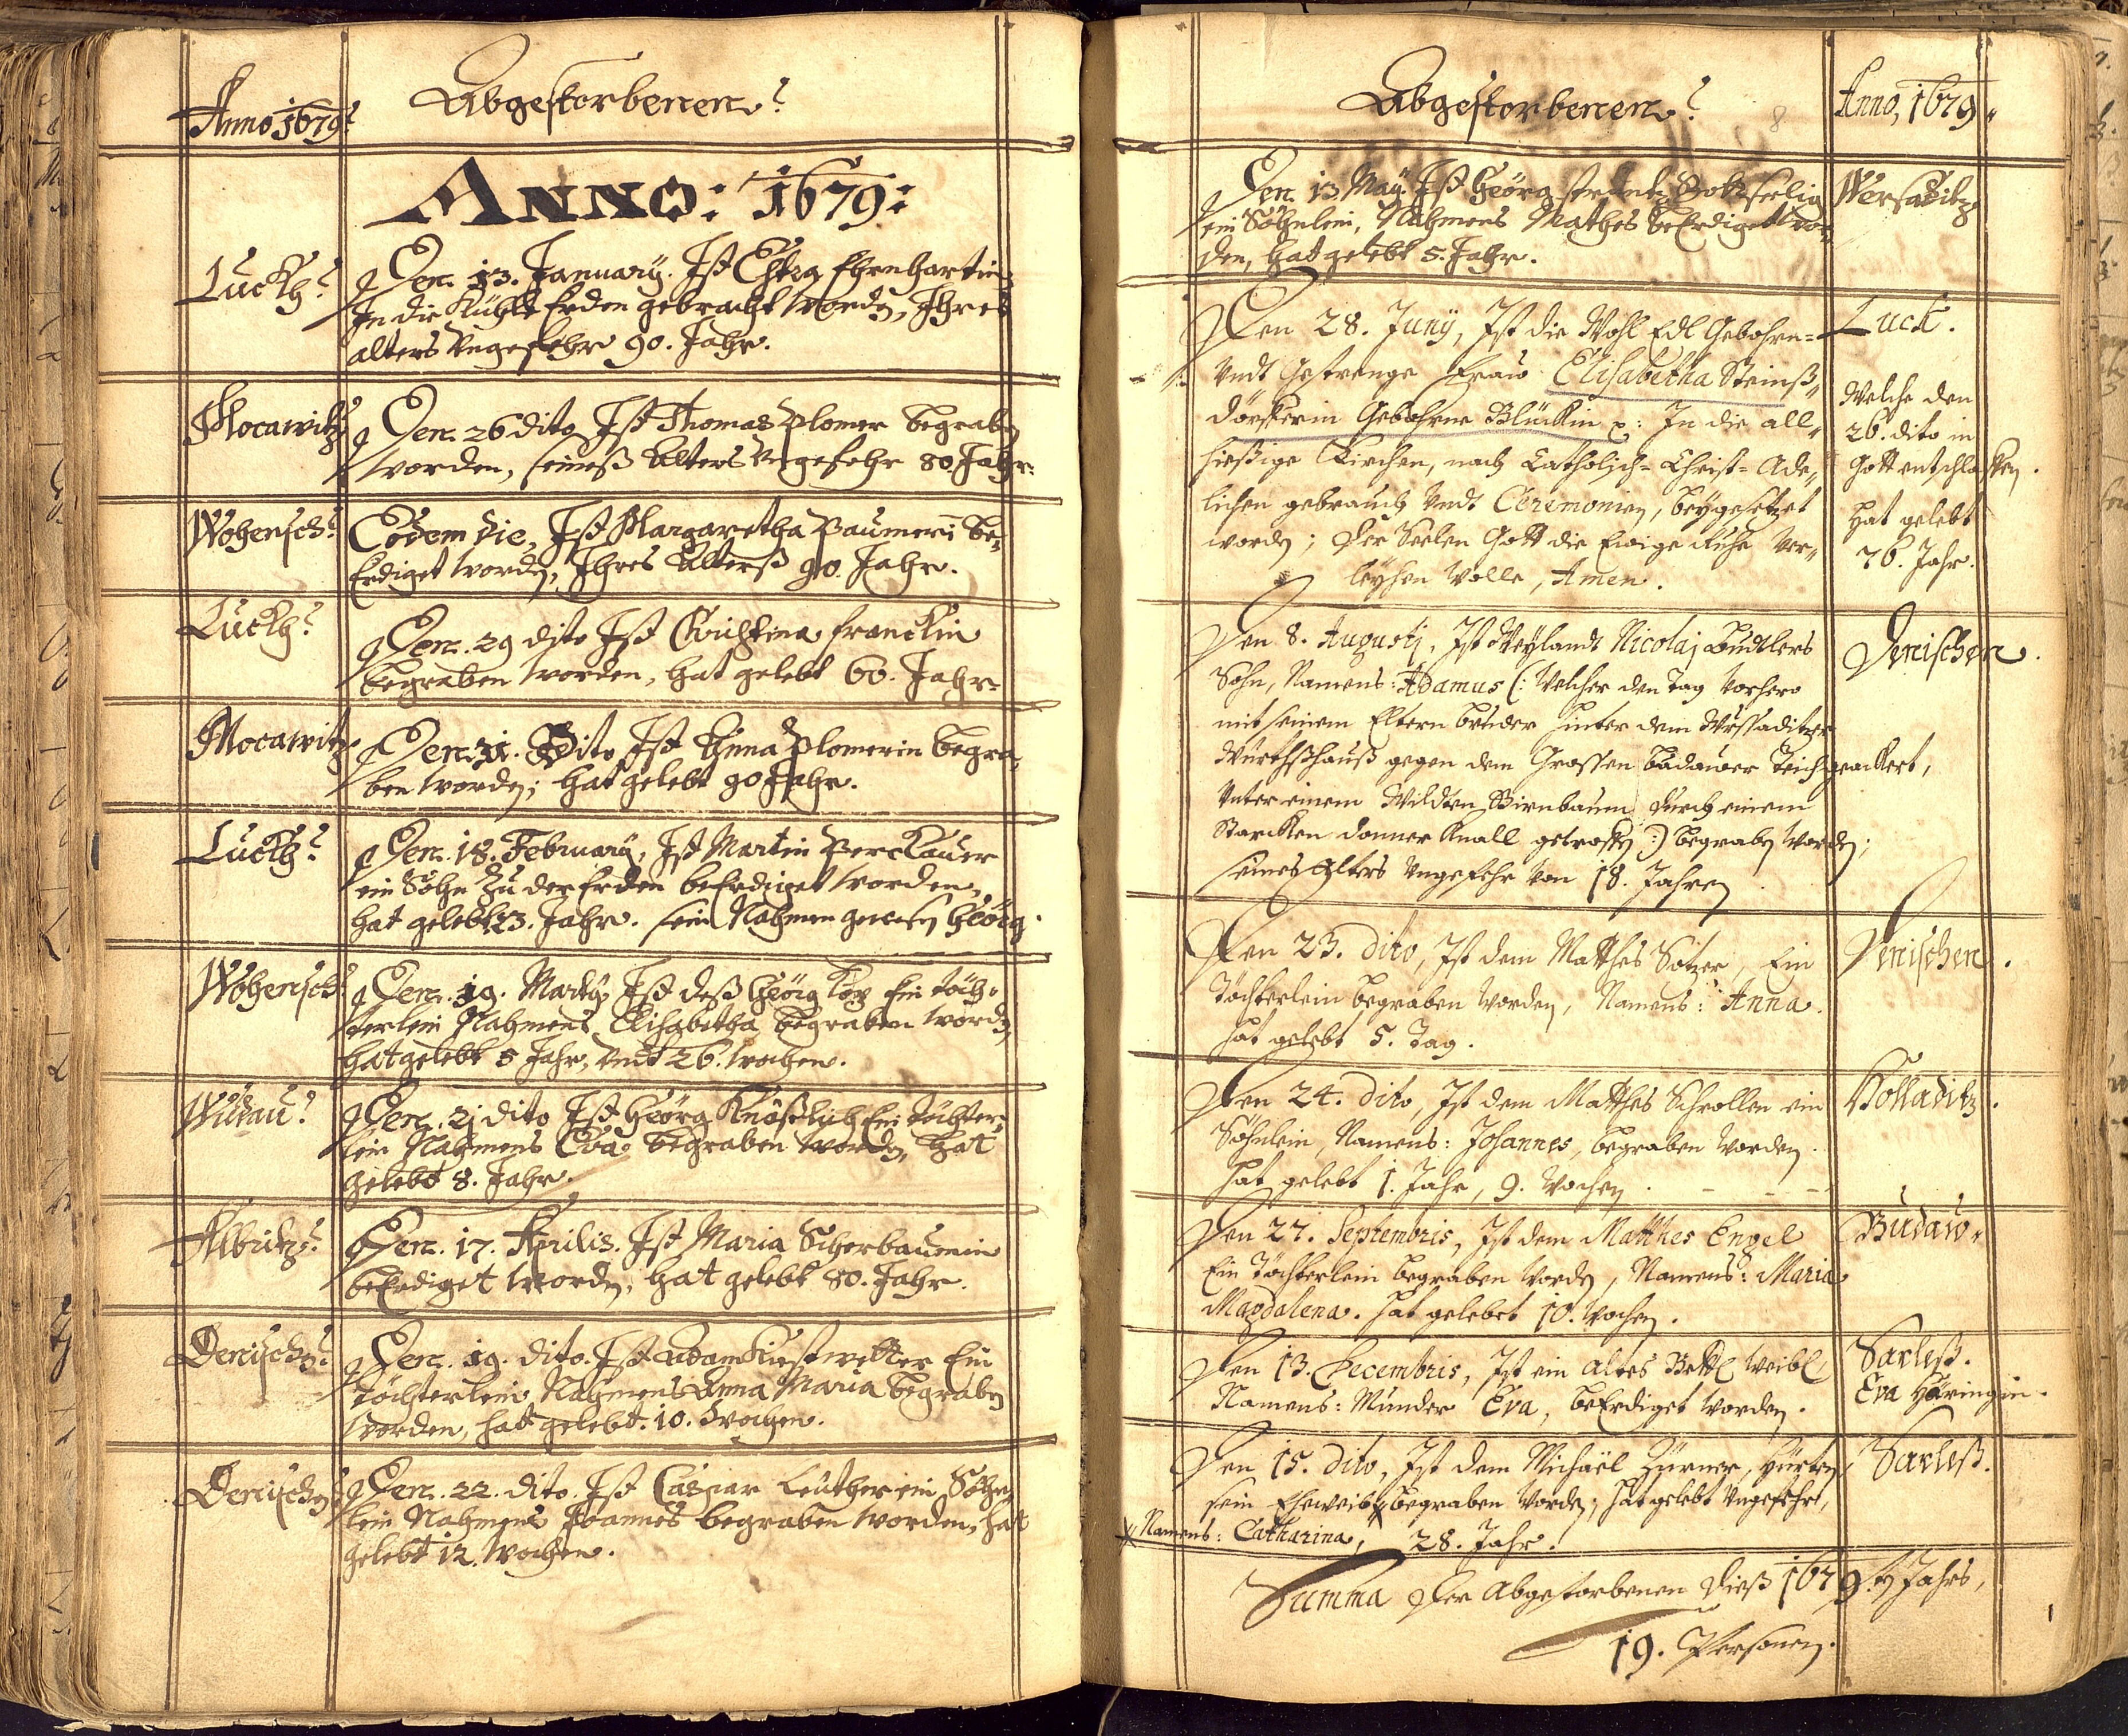 Anno 1679.
Abgestorbenen.
ANNO: 1679:
Luckh.
Den. 13. January. Ist Estra Ehrnhartin
In die Kühle Erden gebracht wordn, Ihres
alters Ungefehr 90. Jahr.
Mocawitz
Den. 26 dito Ist Thomas Plomer begraben
worden, seineß Alters Ungefehr 80. Jahr.
Wohensch.
Eodem die, Ist Margaretha Baumerin be-
Erdiget wordn, Ihres Alterß 90. Jahr.
Luckh.
Den. 29 dito Ist Christina Franckin
begraben worden, hat gelebt 60. Jahr.
Mocawitz
Den. 31. Dito Ist Anna Plomerin begra-
ben wordn; hat gelebt 90 Jahr.
Luckh.
Den. 18. February, Ist Martin Perckauer
ein Sohn zu der Erden beErdiget worden,
hat gelebt 23. Jahr. sein Nahmen gewesn Geörg.
Wohensch
Den. 19. Marty, Ist deß Geörg Ein töch-
terlein Nahmens Elisabetha begraben wordn,
hat gelebt 5 Jahr, Undt 26. wochen.
Wudau.
Den. 21 dito Ist Geörg Ein tüchter-
lein Nahmens Eva begraben wordn, hat
gelebt 8. Jahr.
Albritz.
Den. 17. Aprilis. Ist Maria Scherbaumin
beErdiget wordn, hat gelebt 80. Jahr.
Dereisch.
Den. 19. dito. Ist Adam Kiesewetter Ein
töchterlein Nahmens Anna Maria begraben
worden, hat gelebt. 10. wochen.
Dereischn
Den. 22. dito. Ist Caspar Leuther ein Söhn-
lein Nahmens Joannes begraben worden, hat
gelebt 12. wochen.
Abgestorbenen.
8
Anno, 1679.
Den. 13. May. Ist Geörg Gottseelig
ein Söhnlein, Nahmens Mathes beErdiget wor-
den, hat gelebt 5. Jahr.
Wersaditz
Den 28. Juny, Ist die Wohl Edl Gebohrn-
Undt Gestrenge Fraw Elisabetha Steinß-
dörfferin Gebohrne Blückin: In die all-
hießige Kirchen, nach Catholisch-Christ-Ade-
lichen gebrauch Undt Ceremonien, beygesetzet
wordn; Der Seelen Gott die Ewige Ruhe Ver-
leyhen Wolle, Amen.
Luck.
Welche den
26. dito in
Gott entschlaffen.
hat gelebt
76. Jahr.
Den 8. Augusti, Ist Weylandt Nicolaj Budtlers
Sohn, Namens: Adamus (: Welcher den Tag Vorhero
mit seinem Eltern bruder hinter dem Wersaditzer
Würthßhauß gegen dem Grossen Budauer Teich geackert,
Unter einem Wildten Birnbaum durch einem
Starcken donner Knall getroffn :) begraben wordn;
seines Alters Ungefehr von 18. Jahren
Dereischen.
Den 23. dito, Ist dem Matthes Sotzer, Ein
Töchterlein begraben worden, Namens: Anna.
hat gelebt 5. Tag.
Dereischen.
Den 24. dito, Ist dem Matthes Schrollen ein
Söhnlein, Namens: Johannes, begraben worden.
hat gelebt 1. Jahr, 9. Wochen.
Kolladitz.
Den 27. Septembris, Ist dem Matthes Engel
Ein Töchterlein begraben wordn, Namens: Maria
Magdalena. hat gelebet 10. Wochen.
Budaw.
Den 13. Decembris, Ist ein altes Bettl Weibl,
Namens: Munder Eva, beErdiget worden.
Sarleß.
Eva Häringin.
Den 15. dito, Ist dem Michaël Zürner, Hürten
sein Eheweib x begraben wordn; hat gelebt Ungefehr,
x Namens: Catharina, 28. Jahr.
Sarleß.
Summa Der Abgestorbenen Dieß 1679.ten Jahrs,
19. Personen.